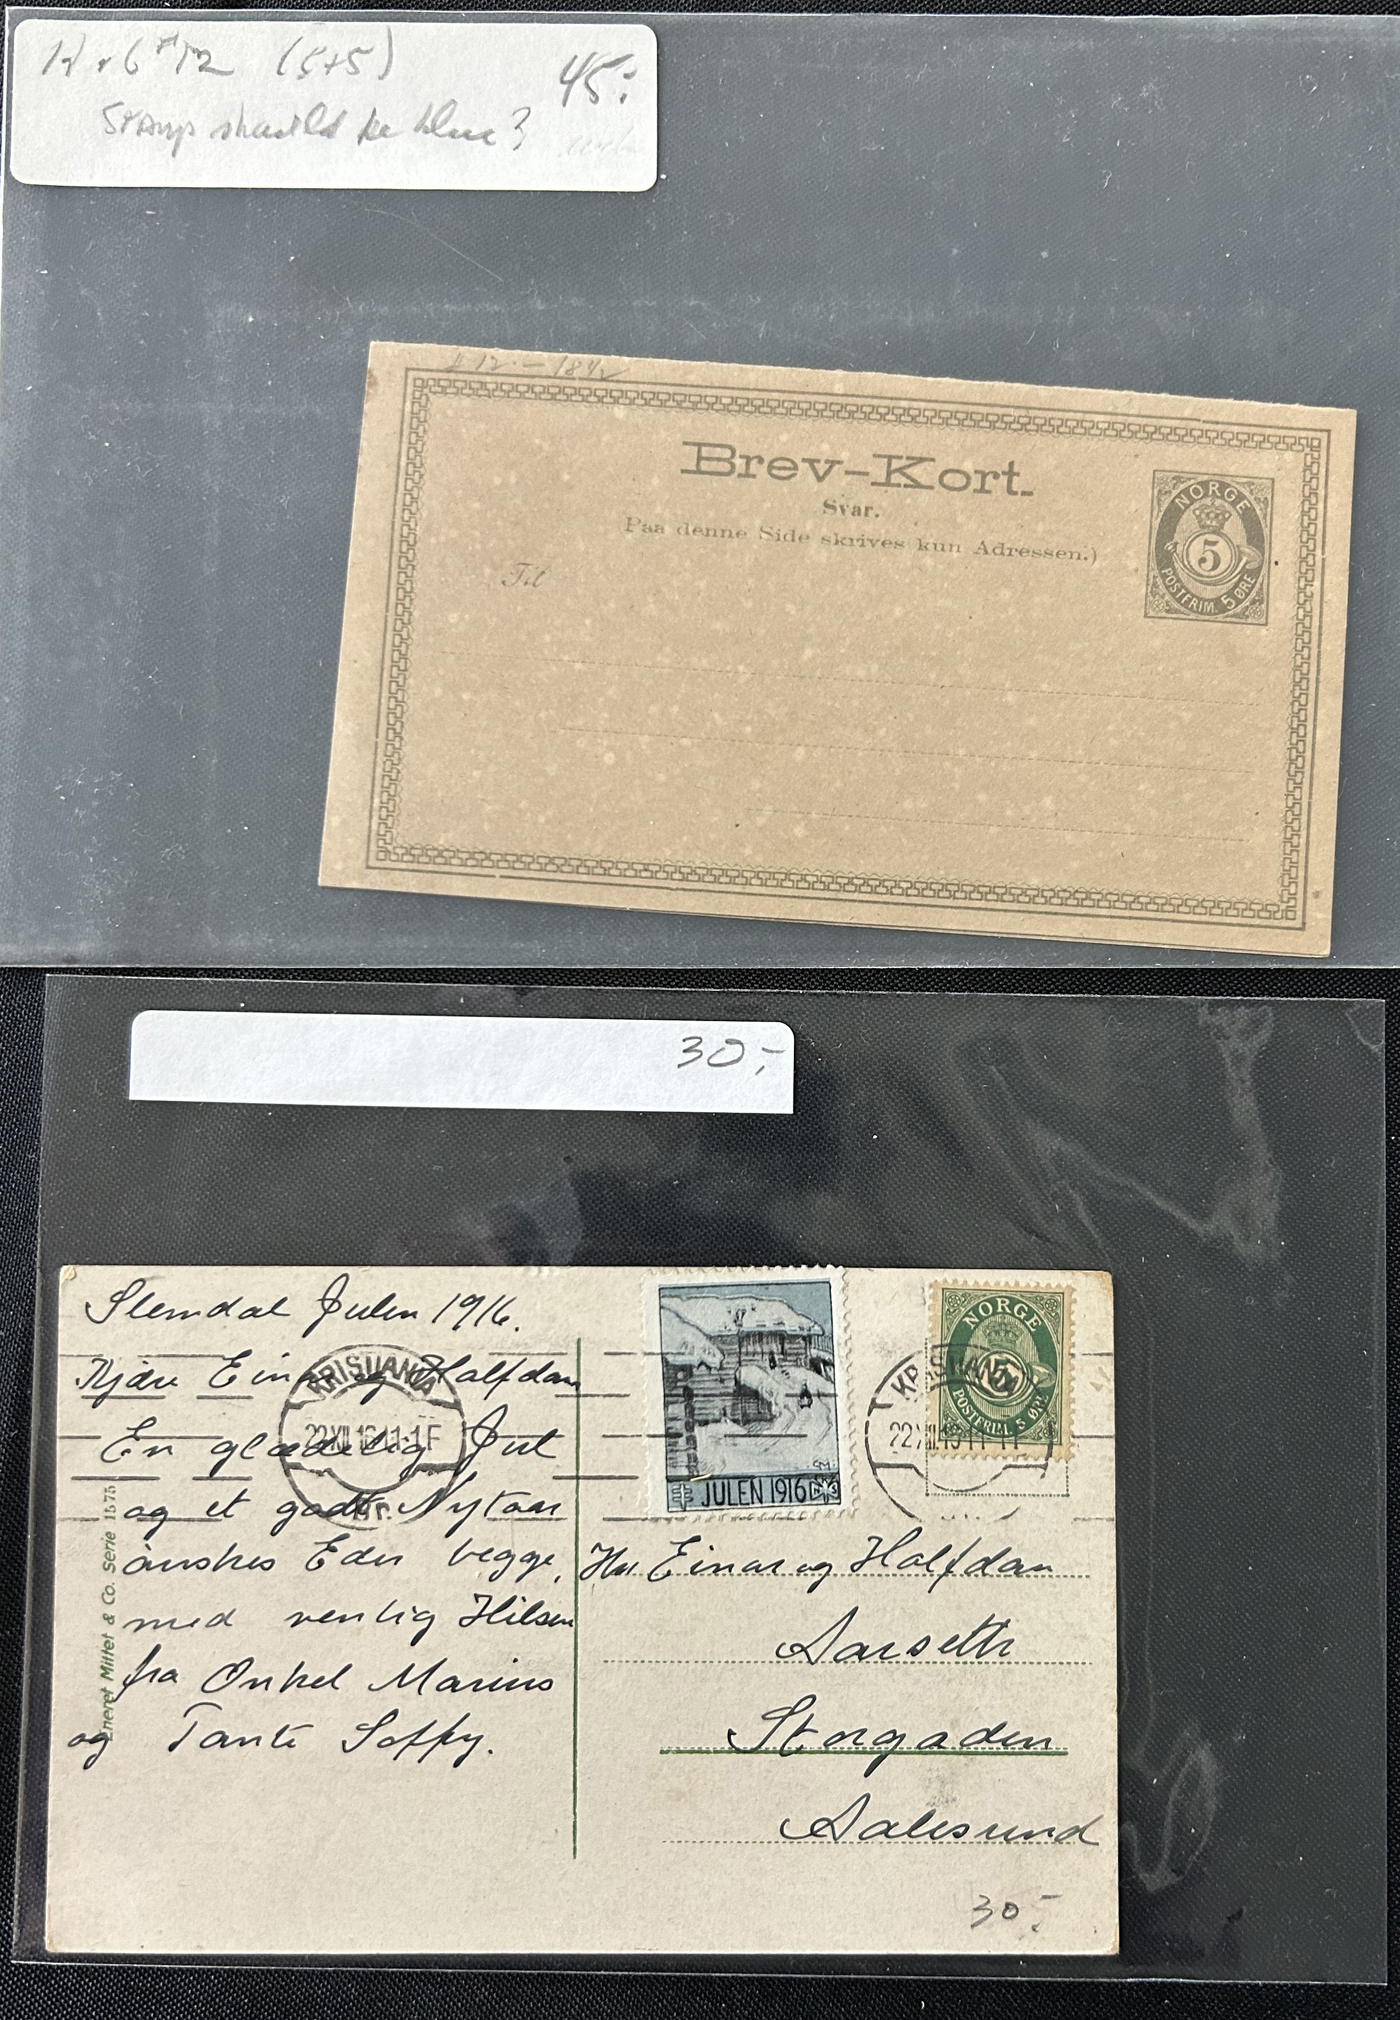 #12 (5+5) 45:
Stamp should be blue?
#12 -
Brev-Kort.
Svar.
Paa denne Side skrives kun Adressen.)
Til
NORGE
5
POSTFRIM. 5 ØRE
30,-
Slemdal Julen 1916.
Kjære Einar og Halfdan
En glædelig Jul
og et godt Nytaar
ønskes Eder begge,
med venlig Hilsen
fra Onkel Marius
og Tante Soffy.
KRISTIANIA
22 XII 16 11-1F
Br.
Eneret Mittet & Co. Serie 1575
JULEN 1916
NORGE
POSTFRIM. 5 ØRE
KRISTIANIA
22 XII 16 11-1F
Hr Einar og Halfdan
Aarseth
Storgaden
Aalesund
30,-